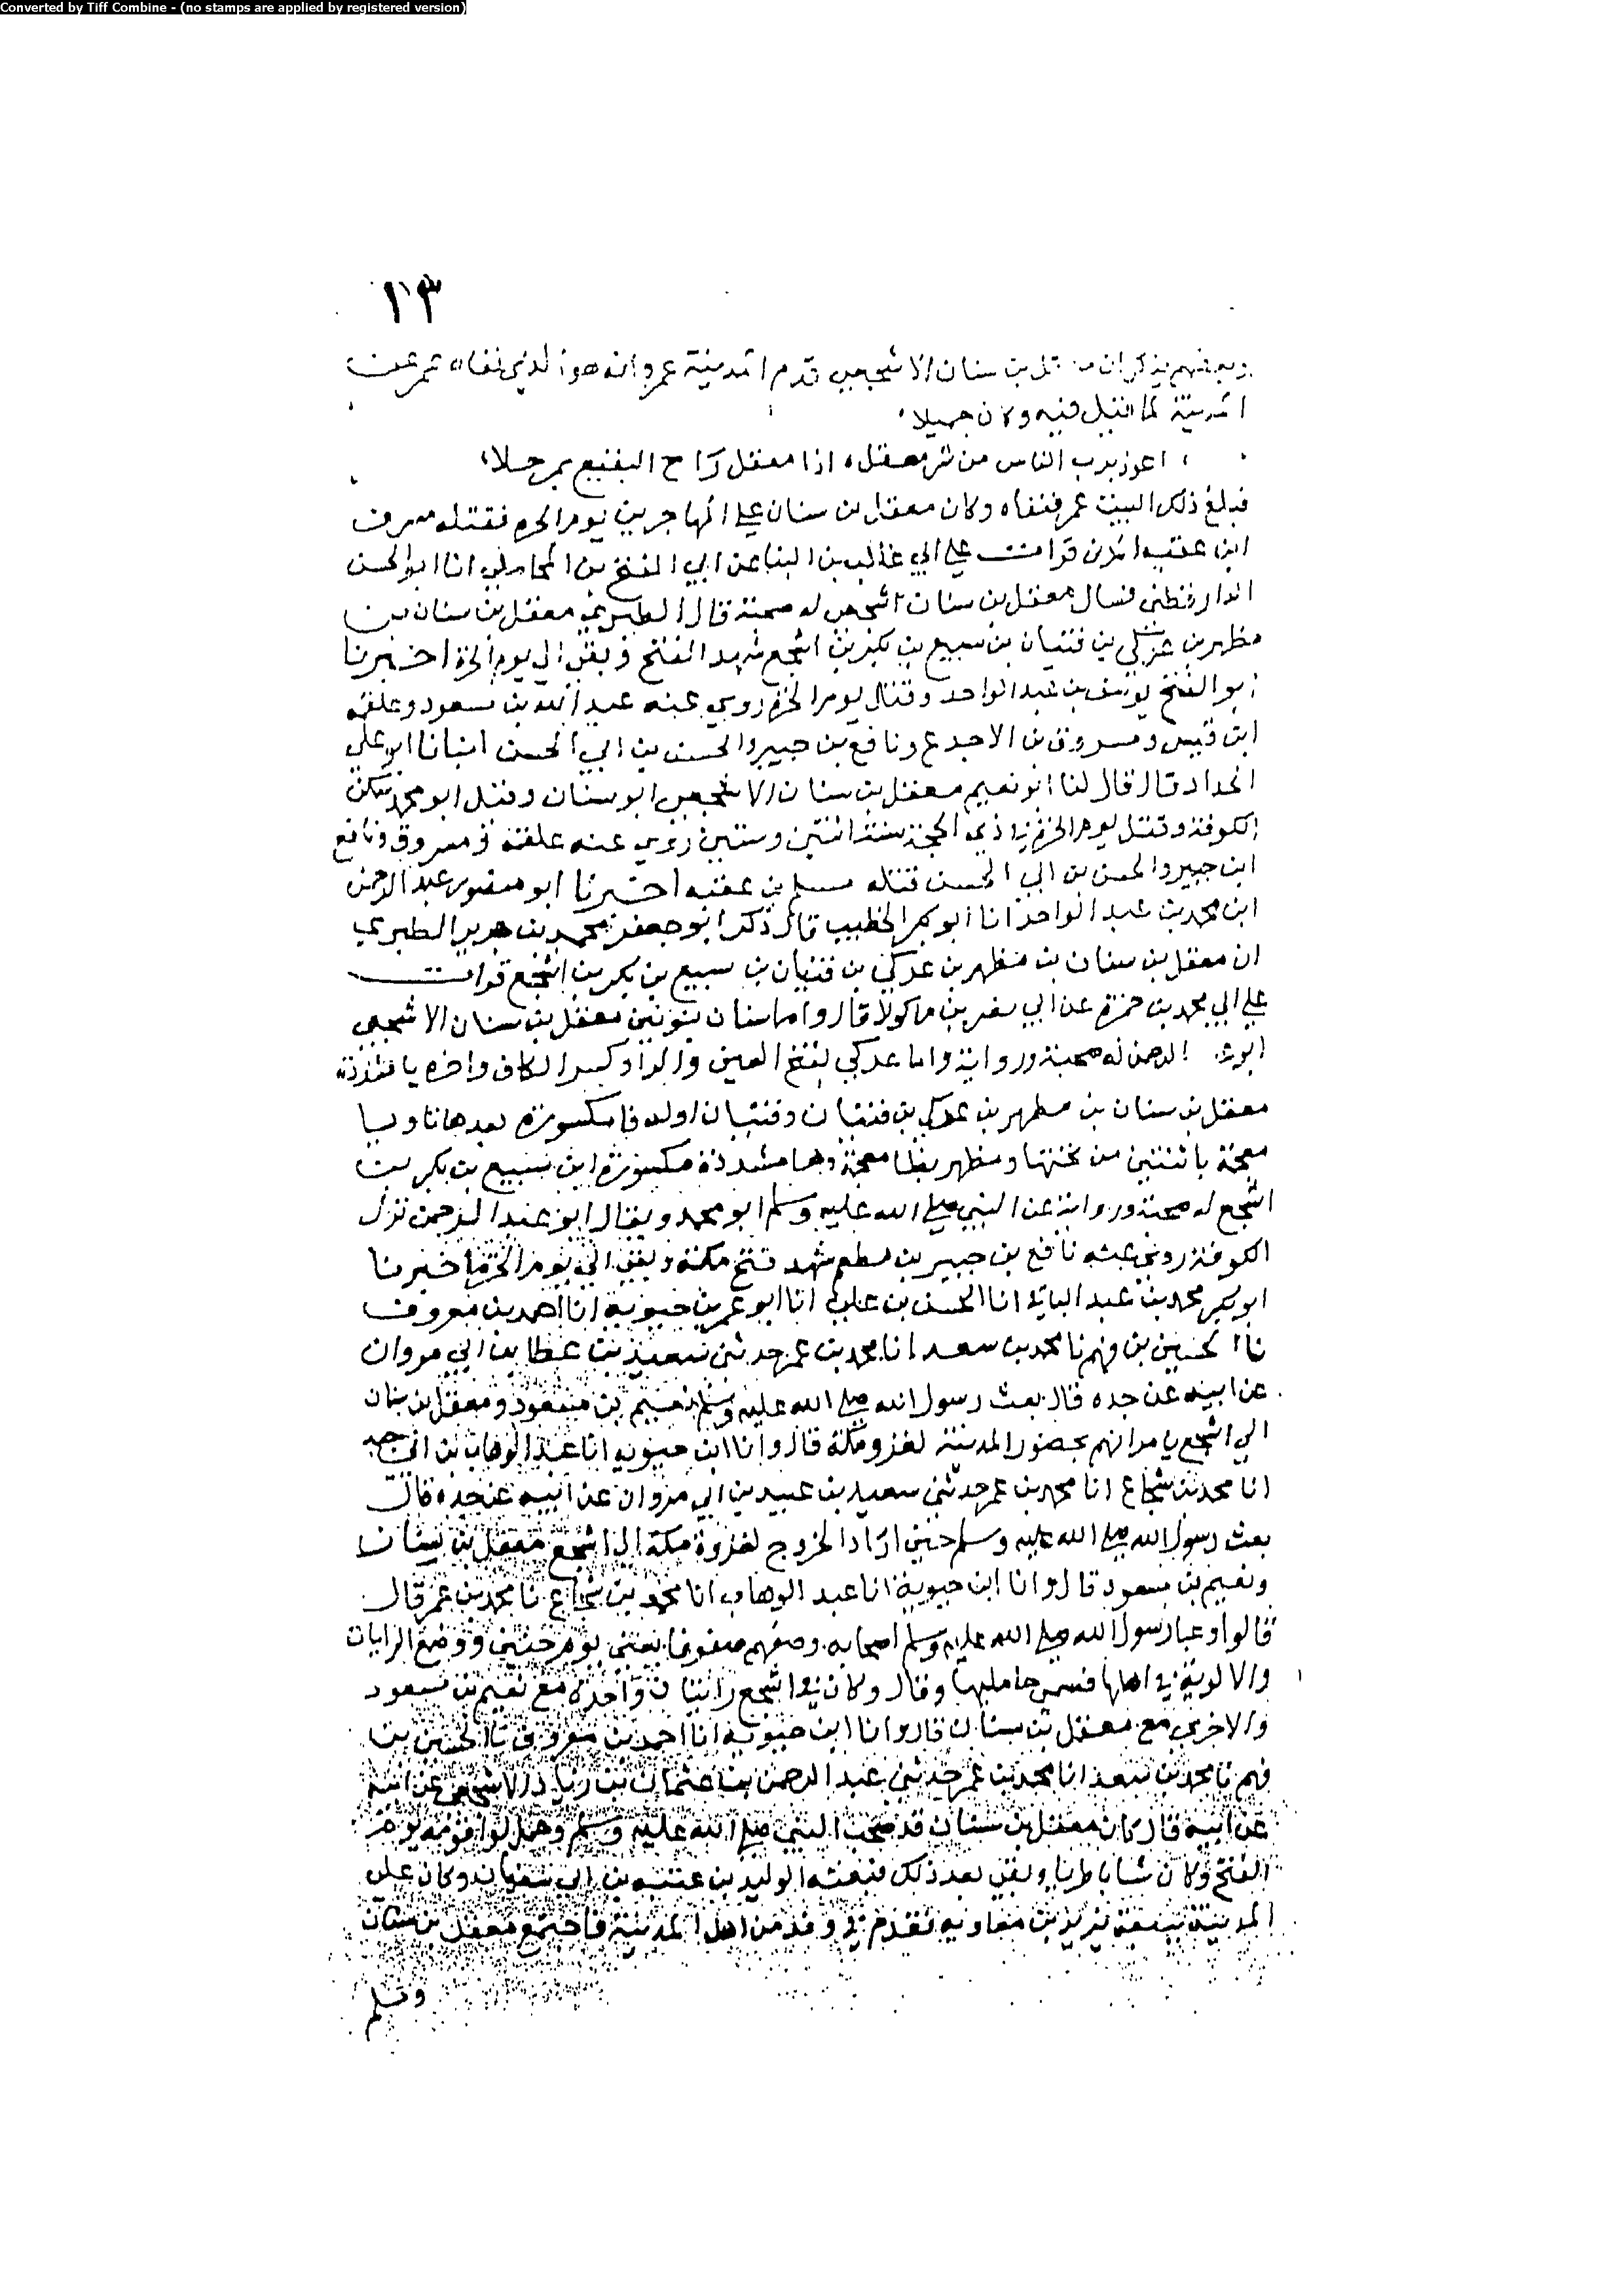 Converted by Tiff Combine - (no stamps are applied by registered version)
١٣
وبعضهم يذكر ان معقل بن سنان الاشجعي قدم المدينة عمر وانه هو الذي نفاه عمر عن
المدينة لما قيل فيه وكان جميلا
اعوذ برب الناس من شر معقل اذا معقل راح البقيع مرجلا
فبلغ ذلك البيت عمر فنفاه وكان معقل بن سنان على المهاجرين يوم الحرة فقتله مسرف
ابن عقبه المزن قرات على ابي غالب بن البنا عن ابي الفتح بن المحاملي انا ابو الحسن
الدارقطني قال معقل بن سنان اشجعي له صحبة قال الطبري معقل بن سنان بن
مظهر بن عركي بن فتيان بن سبيع بن بكر بن اشجع شهد الفتح وبقي الى يوم الحرة اخبرنا
ابو الفتح يوسف بن عبد الواحد وقتل يوم الحرة روي عنه عبد الله بن مسعود وعلقمه
ابن قيس ومسروق بن الاجدع ونافع بن جبير والحسن بن ابي الحسن انبانا ابو علي
الحداد قال قال لنا ابو نعيم معقل بن سنان الاشجعي ابو سنان وقيل ابو محمد سكن
الكوفة وقتل يوم الحرة في ذي الحجة سنة اثنتين وستين روي عنه علقمة ومسروق ونافع
ابن جبير والحسن بن ابي الحسن قتله مسلم بن عقبه اخبرنا ابو منصور عبد الرحمن
ابن محمد بن عبد الواحد انا ابو بكر الخطيب قال ذكر ابو جعفر محمد بن جرير الطبري
ان معقل بن سنان بن مظهر بن عركي بن فتيان بن سبيع بن بكر بن اشجع قرات
على ابي محمد بن حمزة عن ابي نصر بن ماكولا قال واما سنان بنونين معقل بن سنان الاشجعي
ابو الرحمن له صحبة ورواية واما عركي بفتح العين والرا وكسر الكاف واخره يا مشددة
معقل بن سنان بن مظهر بن عركي بن فتيان وفتيان اوله فا مكسورة بعدها تا ويا
معجمة باثنتين من تحتها ومظهر بظا معجمة وها مشددة مكسورة ابن سبيع بن بكر بن
اشجع له صحبة ورواية عن النبي صلى الله عليه وسلم ابو محمد ويقال ابو عبد الرحمن نزل
الكوفة روي عنه نافع بن جبير بن مطعم شهد فتح مكة وبقي الى يوم الحرة اخبرنا
ابو بكر محمد بن عبد الباقي انا الحسن بن علي انا ابو عمر بن حيويه انا احمد بن معروف
نا الحسين بن فهم نا محمد بن سعد انا محمد بن عمر حدثني سعيد بن عطا بن ابي مروان
عن ابيه عن جده قال بعث رسول الله صلى الله عليه وسلم نعيم بن مسعود ومعقل بن سنان
الى اشجع يامرانهم بحضور المدينة لغزو مكة قال وانا ابن حيويه انا عبد الوهاب بن ابي حيه
انا محمد بن شجاع انا محمد بن عمر حدثني سعيد بن عبيد بن ابي مروان عن ابيه عن جده قال
بعث رسول الله صلى الله عليه وسلم حين اراد الخروج لغزوة مكة الى اشجع معقل بن سنان
ونعيم بن مسعود قال وانا ابن حيويه انا عبد الوهاب انا محمد بن شجاع نا محمد بن عمر قال
قالوا وعبا رسول الله صلى الله عليه وسلم اصحابه وصفهم صفوفا يعني يوم حنين ووضع الرايات
والالوية في اهلها فسمى حامليها وقال وكان في اشجع رايتان واحدة مع نعيم بن مسعود
والاخرى مع معقل بن سنان قال وانا ابن حيويه انا احمد بن معروف نا الحسين بن
فهم نا محمد بن سعد انا محمد بن عمر حدثني عبد الرحمن بن عثمان بن زياد الاشجعي عن ابيه
عن ابيه قال كان معقل بن سنان قد صحب النبي صلى الله عليه وسلم وحمل لوا قومه يوم
الفتح وكان شابا طريا وبقي بعد ذلك فبعثه الوليد بن عتبه بن ابي سفيان وكان على
المدينة ببيعة يزيد بن معاويه فقدم في وفد من اهل المدينة فاجتمع معقل بن سنان